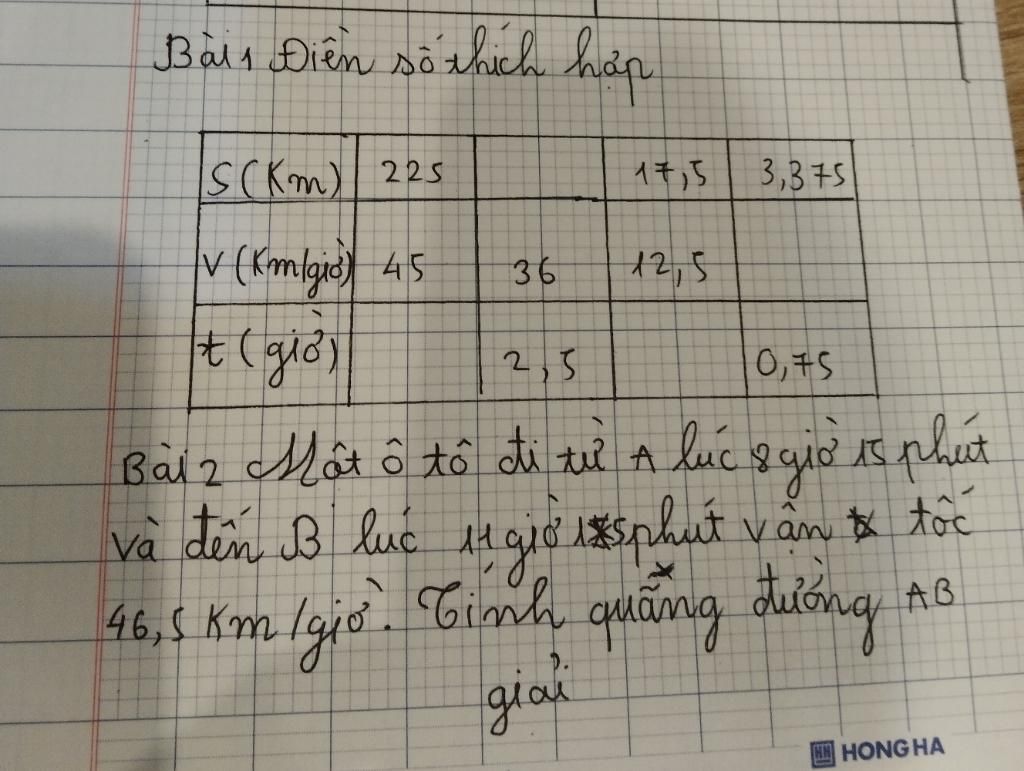 Bài 1 Điền số thích hợp
S (Km) 225 17,5 3,375
V (Km/giờ) 45 36 12,5
t (giờ) 2,5 0,75
Bài 2 Một ô tô đi từ A lúc 8 giờ 15 phút
và đến B lúc 11 giờ 15 phút vận tốc
46,5 Km/giờ. Tính quãng đường AB
giải
HH HONG HA